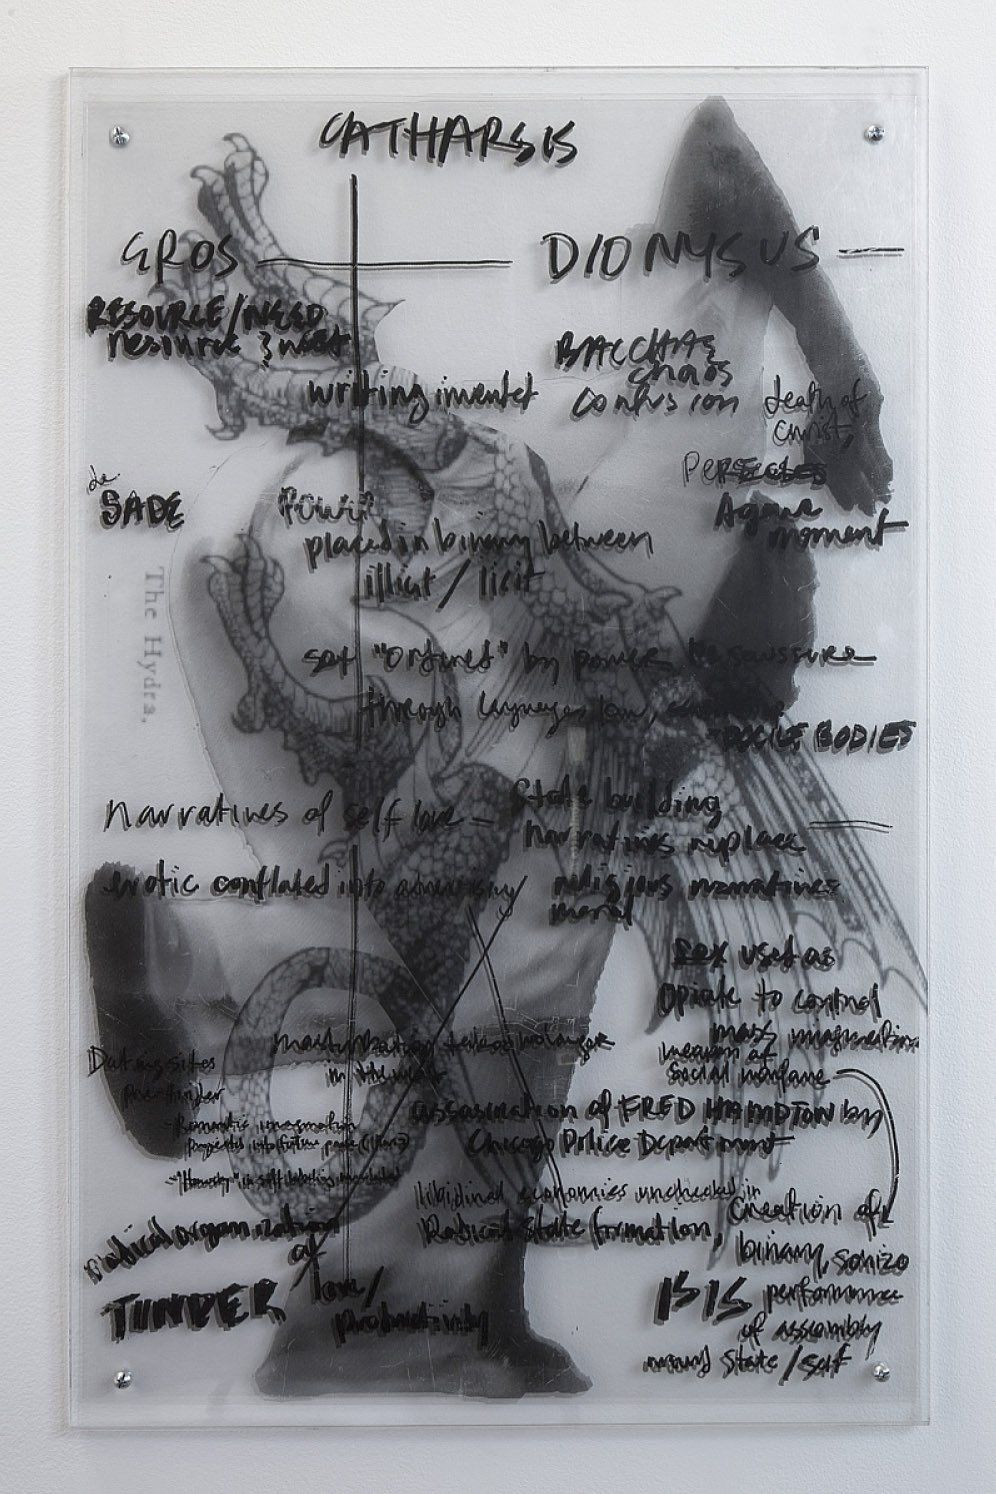 CATHARSIS
EROS
DIONYSUS
RESOURCE/NEED
resource & need
BACCHAE
chaos
writing
confusion
death of
Christ,
de
SADE
PERICLES
Agave
moment
placed in binary between
illicit / licit
set "ordered" by power de saussure
through language, law,
The Hydra.
DOCILE BODIES
narratives of self love –
State building
narratives replace
erotic conflated into adversary
religious narratives
moral
sex used as
Opiate to control
mass
masturbation takes no longer
in the
means of
social warfare
Dating sites
assassination of FRED HAMPTON by
Chicago Police Department
libidinal economies unchecked in
Radical State formation,
creation of
binary, schizo
radical organization
of
love/
productivity
TINDER
ISIS
performance
of assembly
around State/self